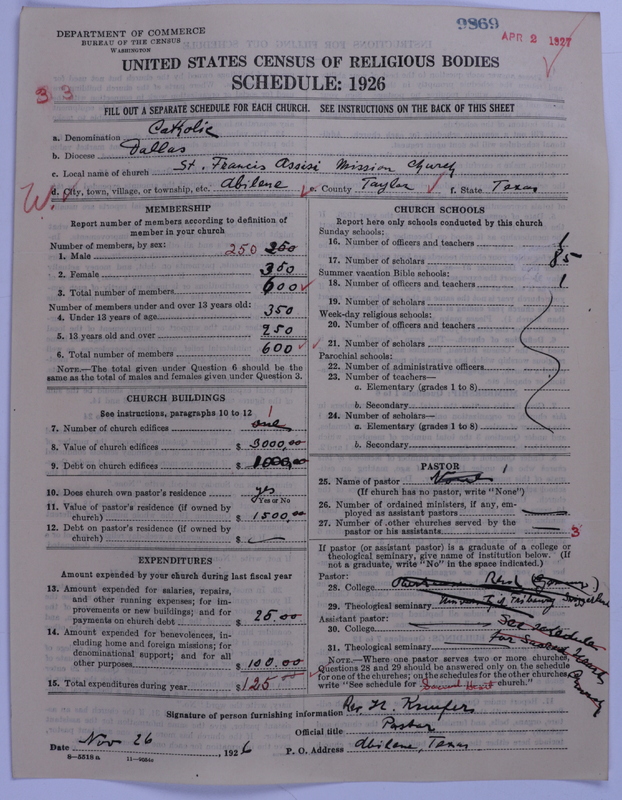 DEPARTMENT OF COMMERCE
BUREAU OF THE CENSUS
WASHINGTON
9869
APR 2 1927
UNITED STATES CENSUS OF RELIGIOUS BODIES
SCHEDULE: 1926
3 3
FILL OUT A SEPARATE SCHEDULE FOR EACH CHURCH. SEE INSTRUCTIONS ON THE BACK OF THIS SHEET
a. Denomination Catholic
b. Diocese Dallas
c. Local name of church St. Francis Assisi Mission Church
W.
d. City, town, village, or township, etc. Abilene e. County Taylor f. State Texas
MEMBERSHIP
Report number of members according to definition of member in your church
Number of members, by sex:
1. Male 250 250
2. Female 350
3. Total number of members 600
Number of members under and over 13 years old:
4. Under 13 years of age 350
5. 13 years old and over 250
6. Total number of members 600
NOTE.—The total given under Question 6 should be
same as the total of males and females given under Question 3.
CHURCH BUILDINGS
See instructions, paragraphs 10 to 12
7. Number of church edifices one 1
8. Value of church edifices $ 3000,00
9. Debt on church edifices $ 1000,00
10. Does church own pastor's residence yes
Yes or No
11. Value of pastor's residence (if owned by
church) $ 1500,00
12. Debt on pastor's residence (if owned by
church) $
EXPENDITURES
Amount expended by your church during last fiscal year
13. Amount expended for salaries, repairs,
and other running expenses; for im-
provements or new buildings; and for
payments on church debt $ 25.00
14. Amount expended for benevolences, in-
cluding home and foreign missions; for
denominational support; and for all
other purposes $ 100.00
15. Total expenditures during year $ 125.00
CHURCH SCHOOLS
Report here only schools conducted by this church
Sunday schools:
16. Number of officers and teachers 1
17. Number of scholars 85
Summer vacation Bible schools:
18. Number of officers and teachers 1
19. Number of scholars
Week-day religious schools:
20. Number of officers and teachers
21. Number of scholars
Parochial schools:
22. Number of administrative officers
23. Number of teachers—
a. Elementary (grades 1 to 8)
b. Secondary
24. Number of scholars—
a. Elementary (grades 1 to 8)
b. Secondary
PASTOR
25. Name of pastor None 1
(If church has no pastor, write "None")
26. Number of ordained ministers, if any, em-
ployed as assistant pastors
27. Number of other churches served by the
pastor or his assistants 3
If pastor (or assistant pastor) is a graduate of a college or
theological seminary, give name of institution below. (If
not a graduate, write "No" in the space indicated.)
Pastor:
28. College
29. Theological seminary University of Fribourg
Assistant pastor:
30. College See Schedule
31. Theological seminary for Sacred Heart
NOTE.—Where one pastor serves two or more churches,
Questions 28 and 29 should be answered only on the schedule
for one of the churches; on the schedules for the other churches
write "See schedule for Sacred Heart church."
Signature of person furnishing information Rev. H. Knufer
Official title Pastor
Date Nov 26, 1926
P. O. Address Abilene, Texas
8-5518 a 11-9084c